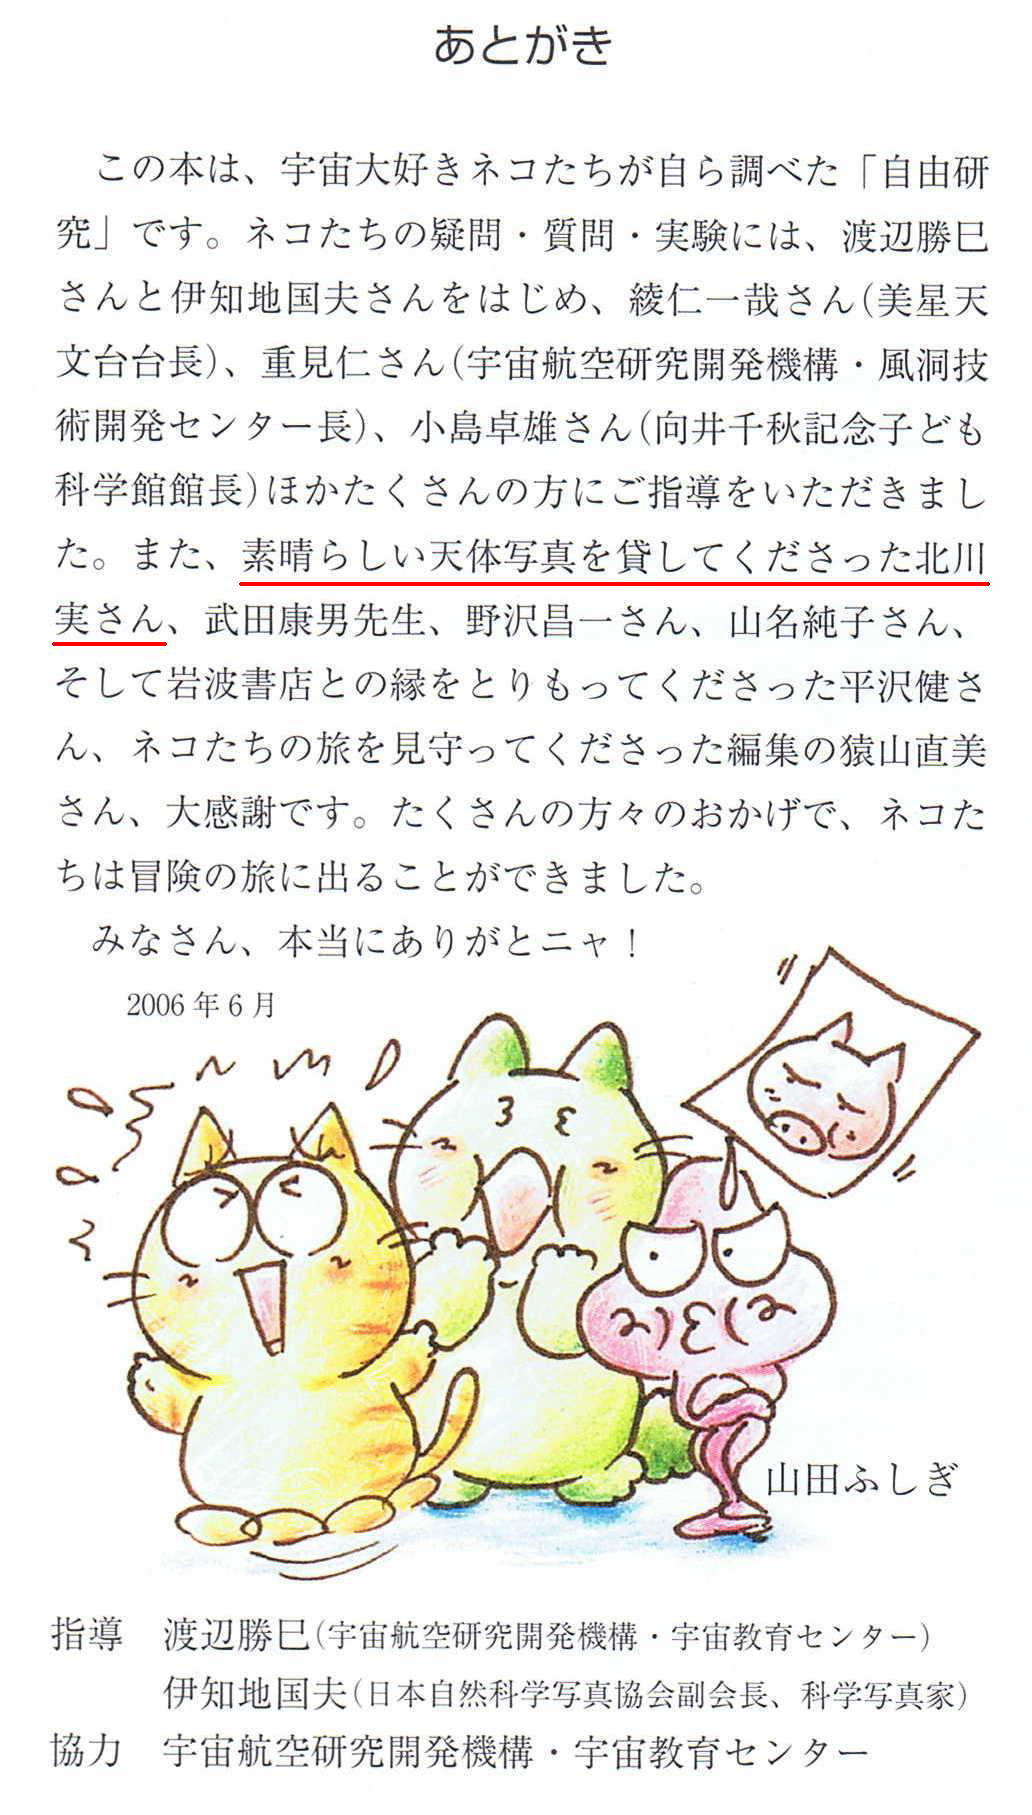 あとがき
この本は、宇宙大好きネコたちが自ら調べた「自由研
究」です。ネコたちの疑問・質問・実験には、渡辺勝巳
さんと伊知地国夫さんをはじめ、綾仁一哉さん(美星天
文台台長)、重見仁さん(宇宙航空研究開発機構・風洞技
術開発センター長)、小島卓雄さん(向井千秋記念子ども
科学館館長)ほかたくさんの方にご指導をいただきまし
た。また、素晴らしい天体写真を貸してくださった北川
実さん、武田康男先生、野沢昌一さん、山名純子さん、
そして岩波書店との縁をとりもってくださった平沢健さ
ん、ネコたちの旅を見守ってくださった編集の猿山直美
さん、大感謝です。たくさんの方々のおかげで、ネコた
ちは冒険の旅に出ることができました。
みなさん、本当にありがとニャ！
2006年6月
山田ふしぎ
指導　渡辺勝巳(宇宙航空研究開発機構・宇宙教育センター)
伊知地国夫(日本自然科学写真協会副会長、科学写真家)
協力　宇宙航空研究開発機構・宇宙教育センター